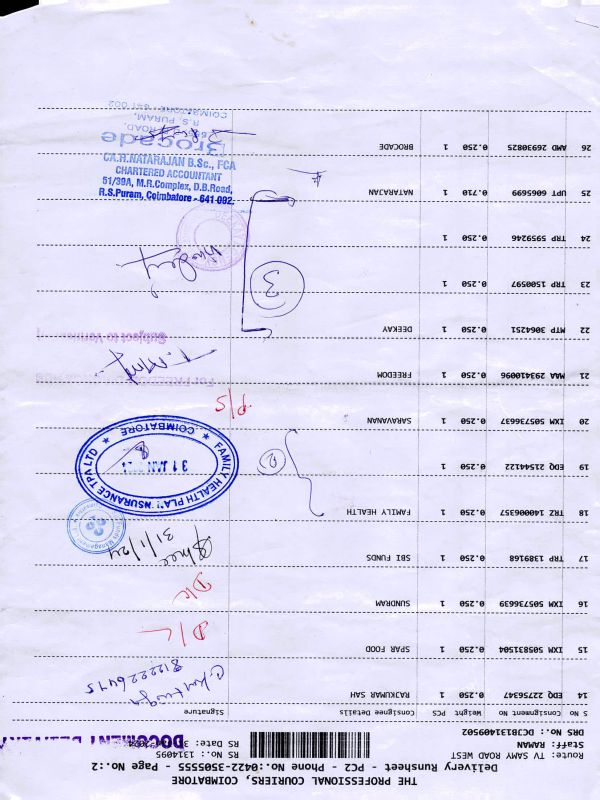 THE PROFESSIONAL COURIERS, COIMBATORE
Delivery Runsheet - PC2 - Phone No.:0422-3505555 - Page No.:2
Route: TV SAMY ROAD WEST
Staff: RAMAN
DRS No.: DCJ7B131409502
RS No.: 1314095
RS Date: 31
DOCUMENT DELIVERY
S No Consignment No Weight PCS Consignee Details Signature
14 EDQ 2756347 0.250 1 RAJKUMAR SAH
8122226475
15 IXM 505831504 0.250 1 SPAR FOOD
D/L
16 IXM 505739639 0.250 1 SUNDRAM
D/L
17 TRP 1389168 0.250 1 SBI FUNDS
31/1/24
18 TRZ 140000357 0.250 1 FAMILY HEALTH
19 EDQ 21544122 0.250 1
2
FAMILY HEALTH PLAN INSURANCE TPA LTD
★ COIMBATORE ★
31 JAN
20 IXM 505736637 0.250 1 SARAVANAN
P/S
21 MAA 293410096 0.250 1 FREEDOM
For FREEDOM
22 MTP 3064251 0.250 1 DEEKAY
Subject to Verification
23 TRP 1500597 0.250 1
3
24 TRP 5959246 0.250 1
25 UPT 60695699 0.710 1 NATARAJAN
CA.R.NATARAJAN B.Sc., FCA
CHARTERED ACCOUNTANT
51/39A, M.R.Complex, D.B.Road,
R.S.Puram, Coimbatore - 641 002.
26 AMD 26930825 0.250 1 BROCADE
Brocade
ROAD,
R.S. PURAM,
COIMBATORE - 641 002